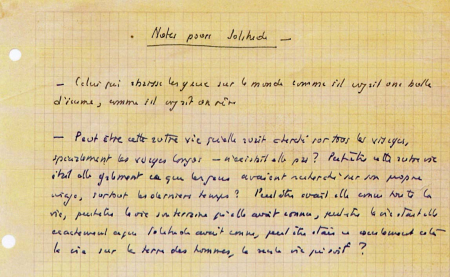 . Notes pour Solitude —
— Celui qui abaisse les yeux sur le monde comme s'il voyait une bulle
d'écume, comme s'il voyait un rêve
— Peut être cette autre vie qu'elle avait cherché sur tous les visages,
spécialement les visages — n'existait elle pas? Peut être cette autre vie
était elle également ce que les gens avaient recherché sur son propre
visage, surtout les derniers temps? Peut être avait elle connu toute la
vie, peut être la vie souterraine qu'elle avait connue, peut être la vie était elle
exactement ce que Solitude avait connu, peut être était ce seulement cela
la vie sur la terre des hommes, la seule vie qui soit?